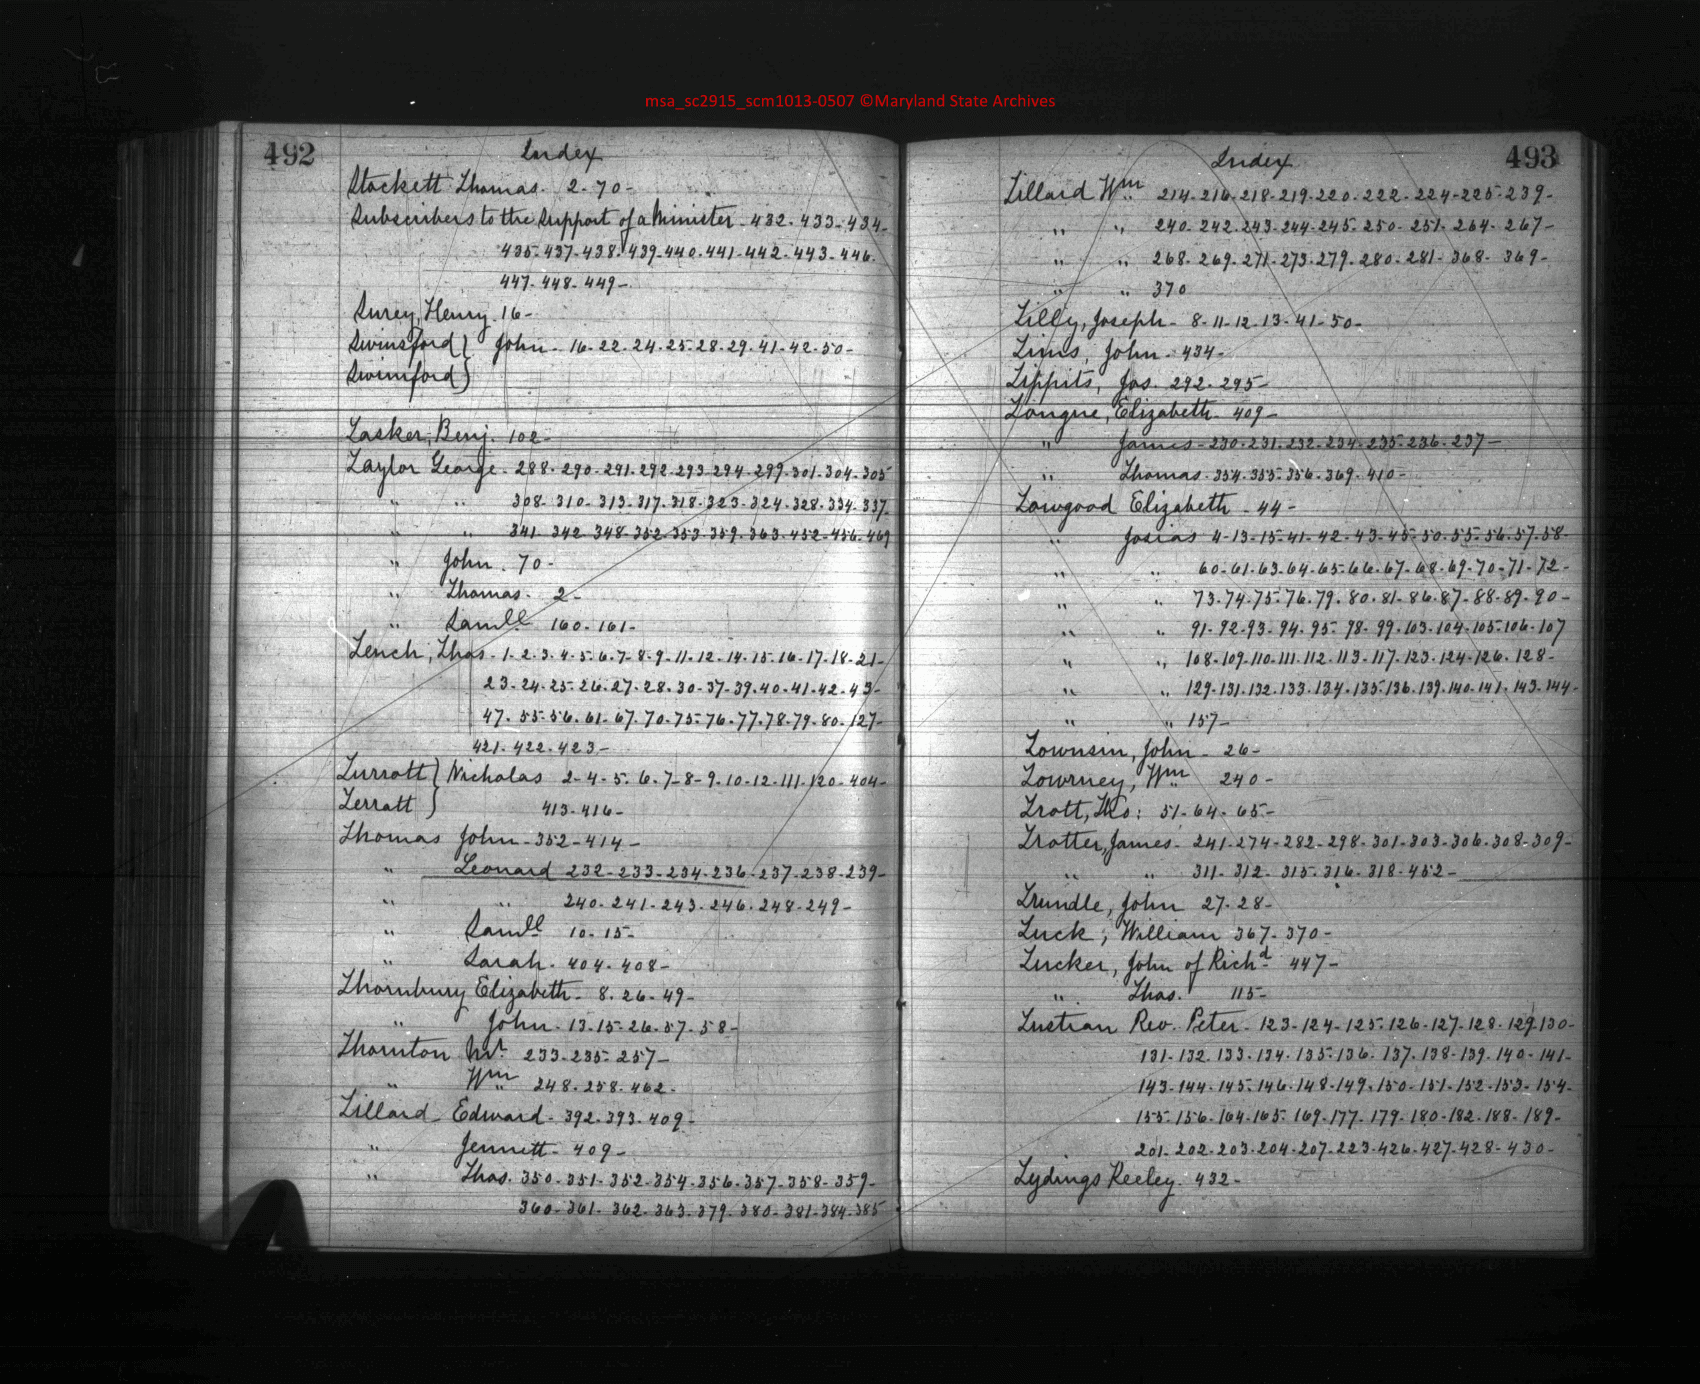 msa_sc2915_scm1013-0507 ©Maryland State Archives
492
Index
Stockett Thomas. 2-70-
Subscribers to the Support of a Minister. 432-433-434-
435-437-438-439-440-441-442-443-446-
447-448-449-
Surey, Henry. 16-
Swinsford } John - 16-22-24-25-28-29-41-42-50-
Swinford }
Tasker, Benj. 102-
Taylor George - 288-290-291-292-293-294-299-301-304-305
" " 308-310-313-317-318-323-324-328-334-337-
" " 341-342-348-352-353-359-363-452-456-469
" John. 70-
" Thomas. 2-
" Samll 160-161-
Tench, Thos - 1-2-3-4-5-6-7-8-9-11-12-14-15-16-17-18-21-
23-24-25-26-27-28-30-37-39-40-41-42-43-
47-55-56-61-67-70-75-76-77-78-79-80-127-
421-422-423-
Turrott } Nicholas 2-4-5-6-7-8-9-10-12-111-120-404-
Terratt } 413-416-
Thomas John - 352-414-
" Leonard 232-233-234-236-237-238-239-
" " 240-241-243-246-248-249-
" Samll 10-15-
" Sarah. 404-408-
Thornbury Elizabeth - 8-26-49-
" John - 13-15-26-57-58-
Thornton Mr. 233-235-257-
" Wm 248-258-462-
Tillard Edward - 392-393-409-
" Jennett - 409-
" Thos. 350-351-352-354-356-357-358-359-
360-361-362-363-379-380-381-384-385
493
Index
Tillard Wm 214-216-218-219-220-222-224-225-239-
" " 240-242-243-244-245-250-251-264-267-
" " 268-269-271-273-279-280-281-368-369-
" " 370
Tilly, Joseph - 8-11-12-13-41-50-
Tims, John - 434-
Tippits, Jas. 292-295-
Tongue, Elizabeth - 409-
" James - 230-231-232-234-235-236-237-
" Thomas - 354-355-356-369-410-
Towgood Elizabeth - 44-
" Josias 4-13-15-41-42-43-45-50-55-56-57-58-
" " 60-61-63-64-65-66-67-68-69-70-71-72-
" " 73-74-75-76-79-80-81-86-87-88-89-90-
" " 91-92-93-94-95-98-99-103-104-105-106-107
" " 108-109-110-111-112-113-117-123-124-126-128-
" " 129-131-132-133-134-135-136-139-140-141-143-144-
" " 157-
Townsin, John - 26-
Towrney, Wm 240-
Trott, Tho: 51-64-65-
Trotter, James - 241-274-282-298-301-303-306-308-309-
" " 311-312-315-316-318-452-
Trundle, John 27-28-
Tuck, William 367-370-
Tucker, John of Richd 447-
" Thos. 115-
Tustian Rev. Peter - 123-124-125-126-127-128-129-130-
131-132-133-134-135-136-137-138-139-140-141-
143-144-145-146-148-149-150-151-152-153-154-
155-156-164-165-169-177-179-180-182-188-189-
201-202-203-204-207-223-426-427-428-430-
Tydings Keeley - 432-